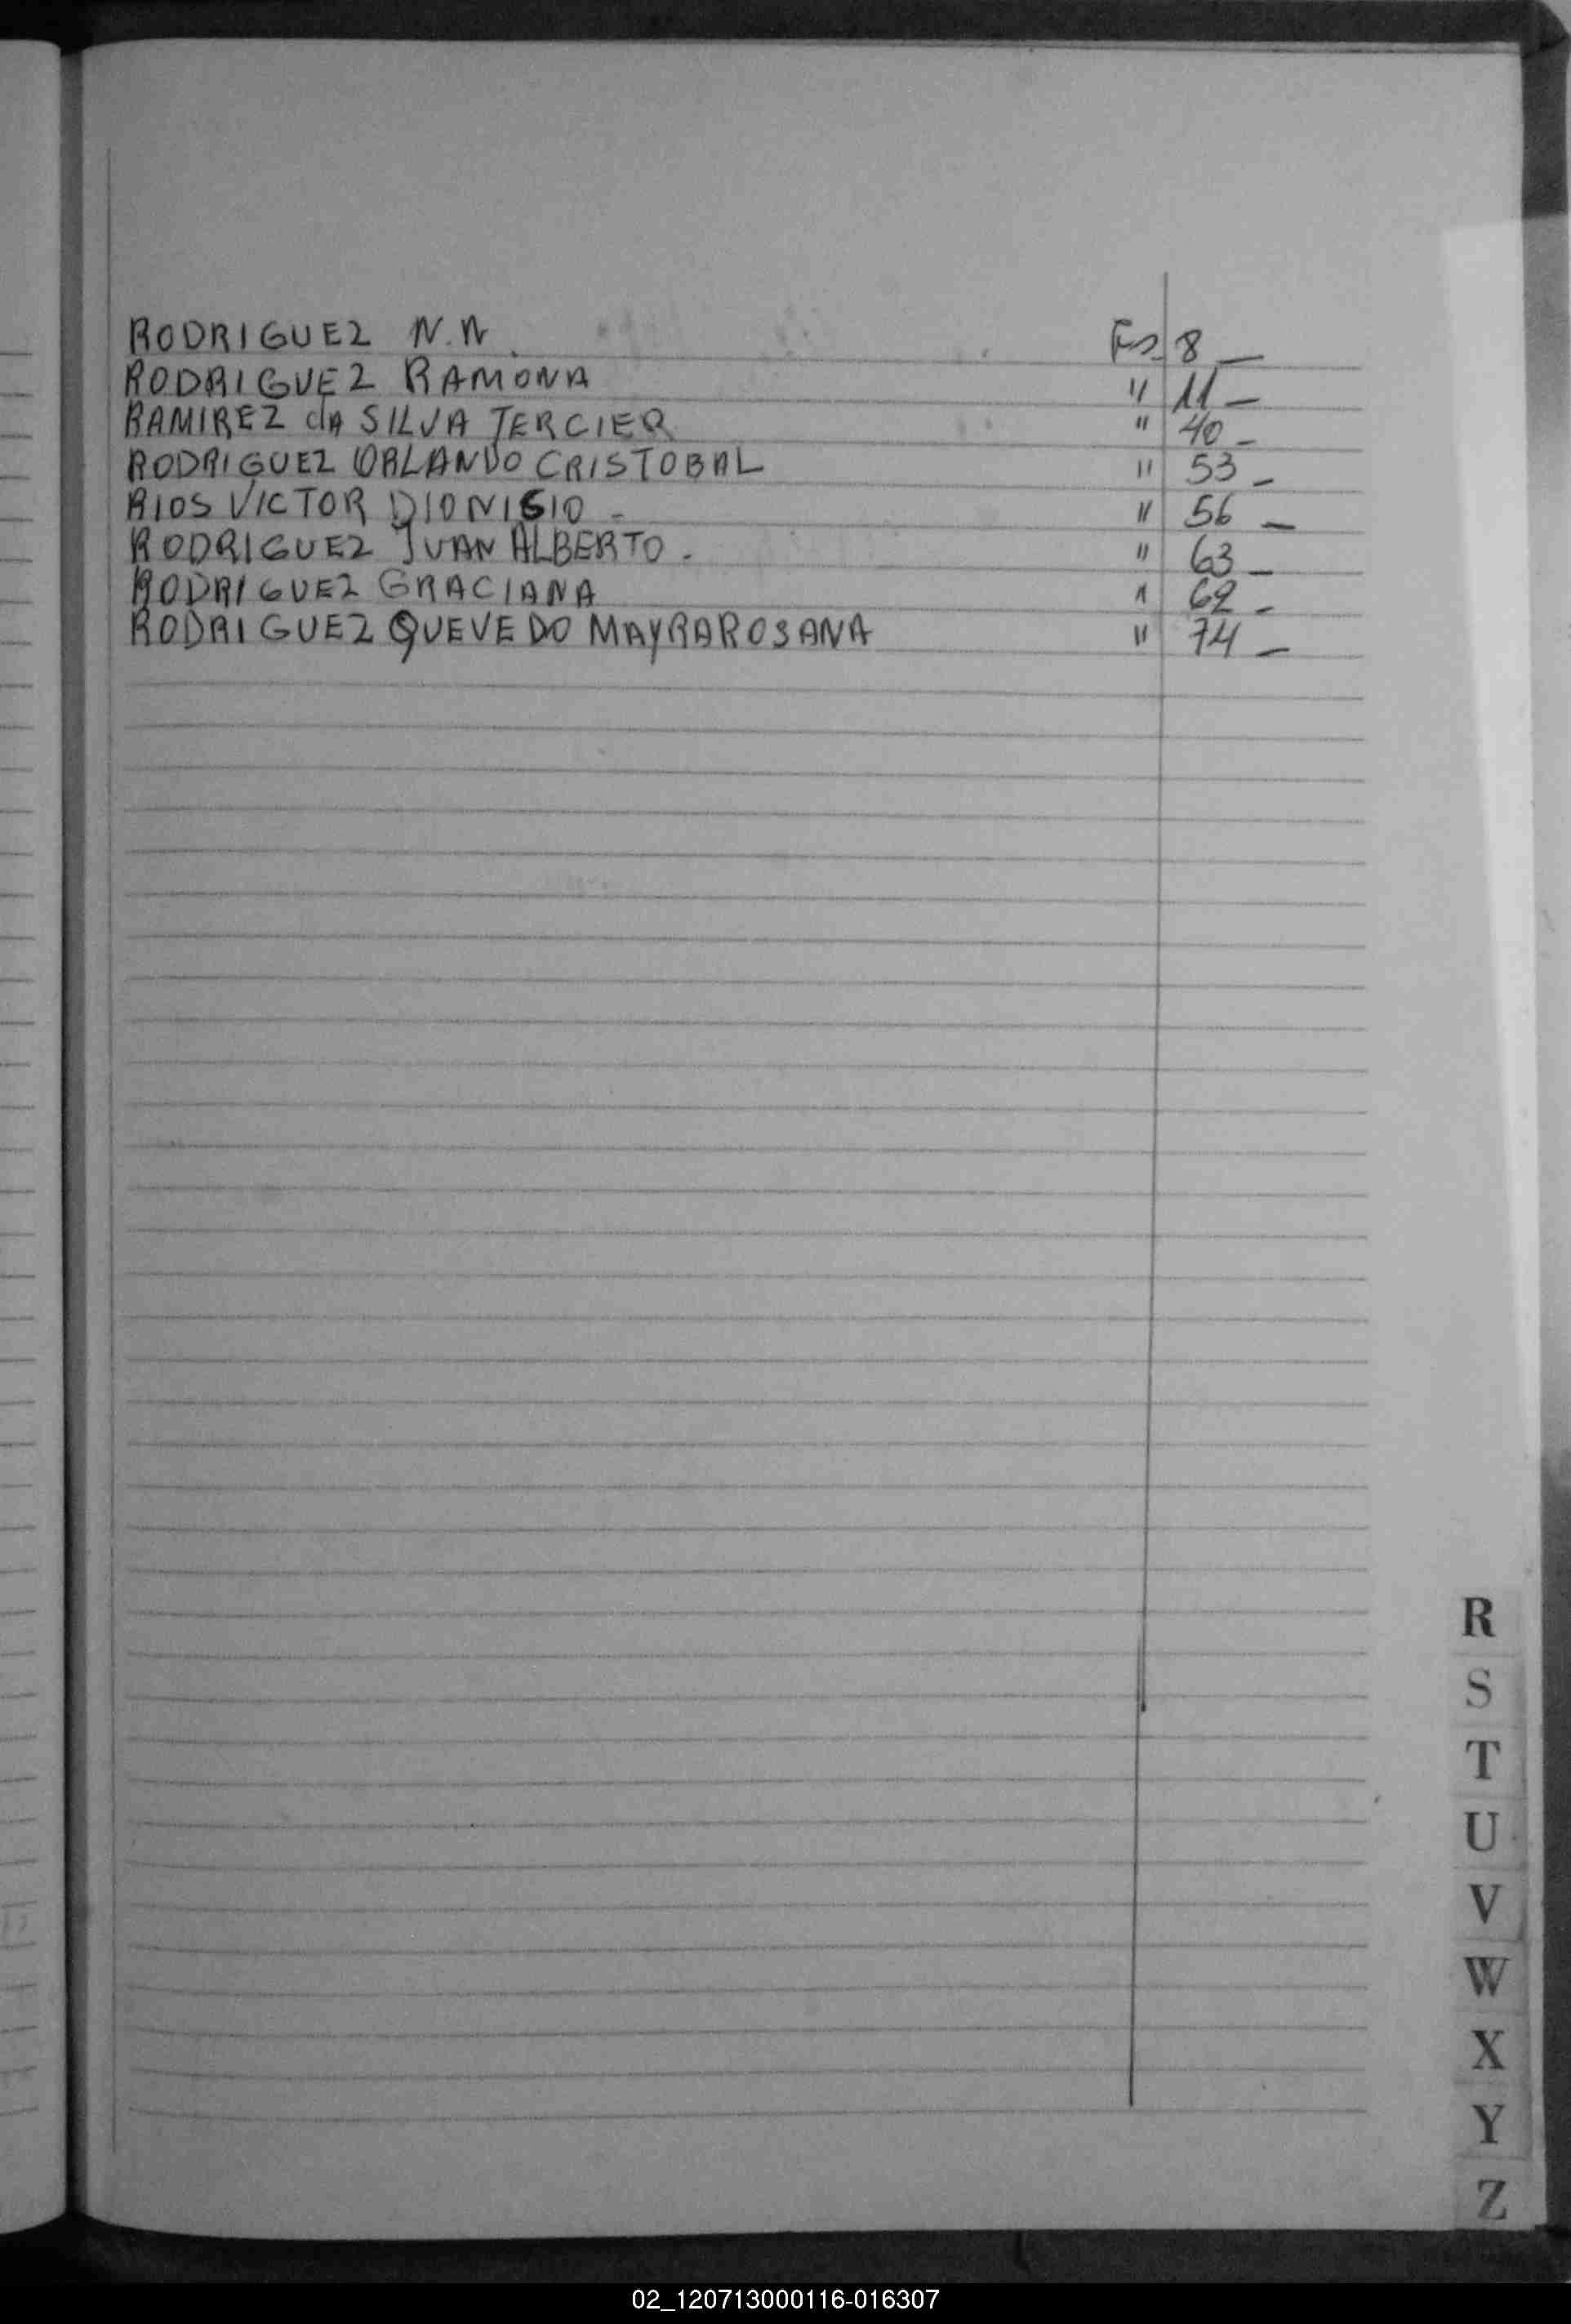 RODRIGUEZ N.N. Fs. 8 —
RODRIGUEZ RAMONA " 11 —
RAMIREZ dA SILVA TERCIER " 40 —
RODRIGUEZ ORLANDO CRISTOBAL " 53 —
RIOS VICTOR DIONISIO - " 56 —
RODRIGUEZ JUAN ALBERTO. " 63 —
RODRIGUEZ GRACIANA " 62 -
RODRIGUEZ QUEVEDO MAYRA ROSANA " 74 —
R
S
T
U
V
W
X
Y
Z
02_120713000116-016307